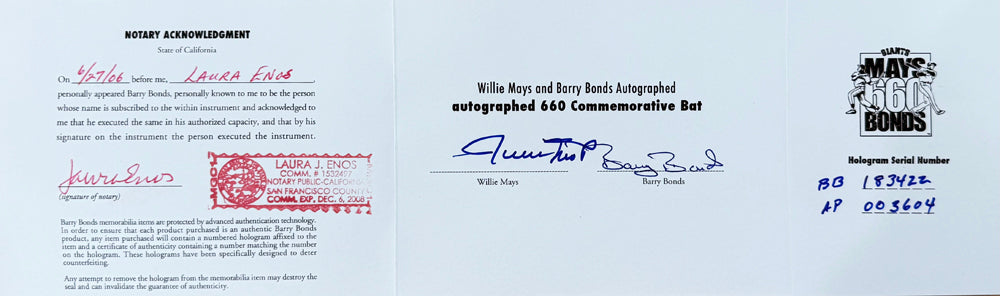 NOTARY ACKNOWLEDGMENT
State of California
On 6/27/06 before me, LAURA ENOS,
personally appeared Barry Bonds, personally known to me to be the person
whose name is subscribed to the within instrument and acknowledged to
me that he executed the same in his authorized capacity, and that by his
signature on the instrument the person executed the instrument.
Laura Enos
(signature of notary)
LAURA J. ENOS
COMM. # 1532497
NOTARY PUBLIC-CALIFORNIA
SAN FRANCISCO COUNTY
COMM. EXP. DEC. 6, 2008
Barry Bonds memorabilia items are protected by advanced authentication technology.
In order to ensure that each product purchased is an authentic Barry Bonds
product, any item purchased will contain a numbered hologram affixed to the
item and a certificate of authenticity containing a number matching the number
on the hologram. These holograms have been specifically designed to deter
counterfeiting.
Any attempt to remove the hologram from the memorabilia item may destroy the
seal and can invalidate the guarantee of authenticity.
Willie Mays and Barry Bonds Autographed
autographed 660 Commemorative Bat
Barry Bonds
Willie Mays
Barry Bonds
GIANTS
MAYS
660
BONDS
Hologram Serial Number
BB 183422
AP 003604